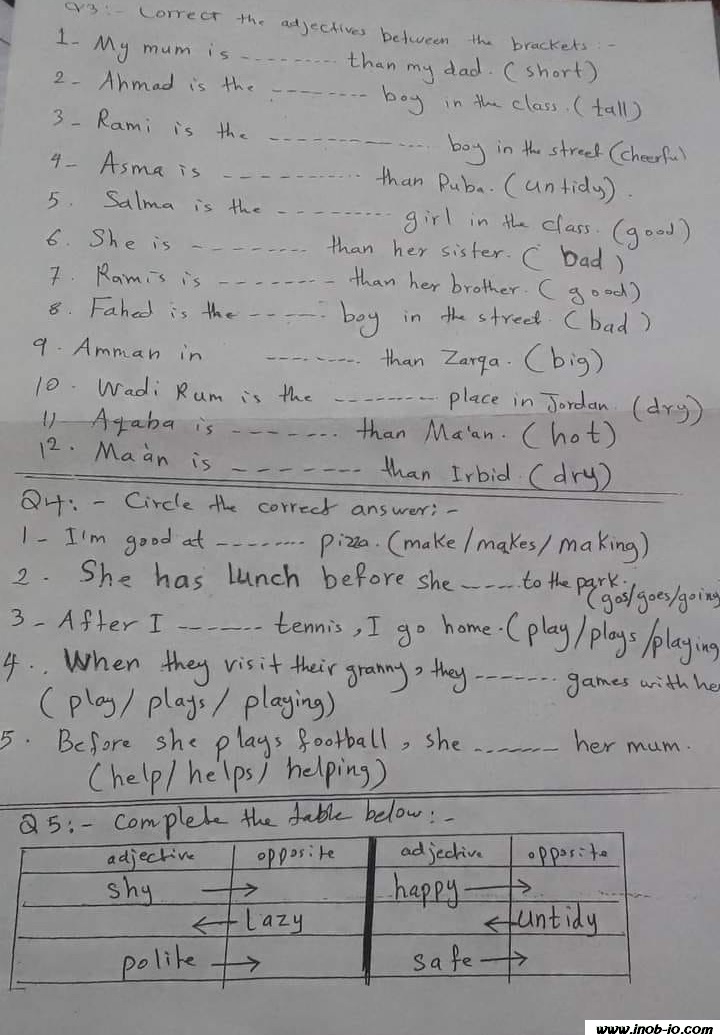 Q3:- Correct the adjectives between the brackets:-
1- My mum is --------- than my dad. (short)
2- Ahmad is the -------- boy in the class. (tall)
3- Rami is the ------------- boy in the street (cheerful)
4- Asma is ----------- than Ruba. (untidy).
5. Salma is the --------- girl in the class. (good)
6. She is -------- than her sister. (bad)
7. Ramis is -------- than her brother. (good)
8. Fahed is the ------ boy in the street. (bad)
9. Amman in -------- than Zarqa. (big)
10. Wadi Rum is the -------- place in Jordan. (dry)
11 Aqaba is ------- than Ma'an. (hot)
12. Ma'an is -------- than Irbid. (dry)
Q4:- Circle the correct answer:-
1- I'm good at -------- pizza. (make/makes/making)
2. She has lunch before she ---- to the park.
(gos/goes/going
3- After I ------- tennis, I go home. (play/plays/playing
4.. When they visit their granny, they ------- games with he
(play/plays/playing)
5. Before she plays football, she ------ her mum.
(help/helps/helping)
Q5:- Complete the table below:-
adjective opposite adjective opposite
shy → happy →
← Lazy ← Untidy
polite → safe →
www.inob-io.com